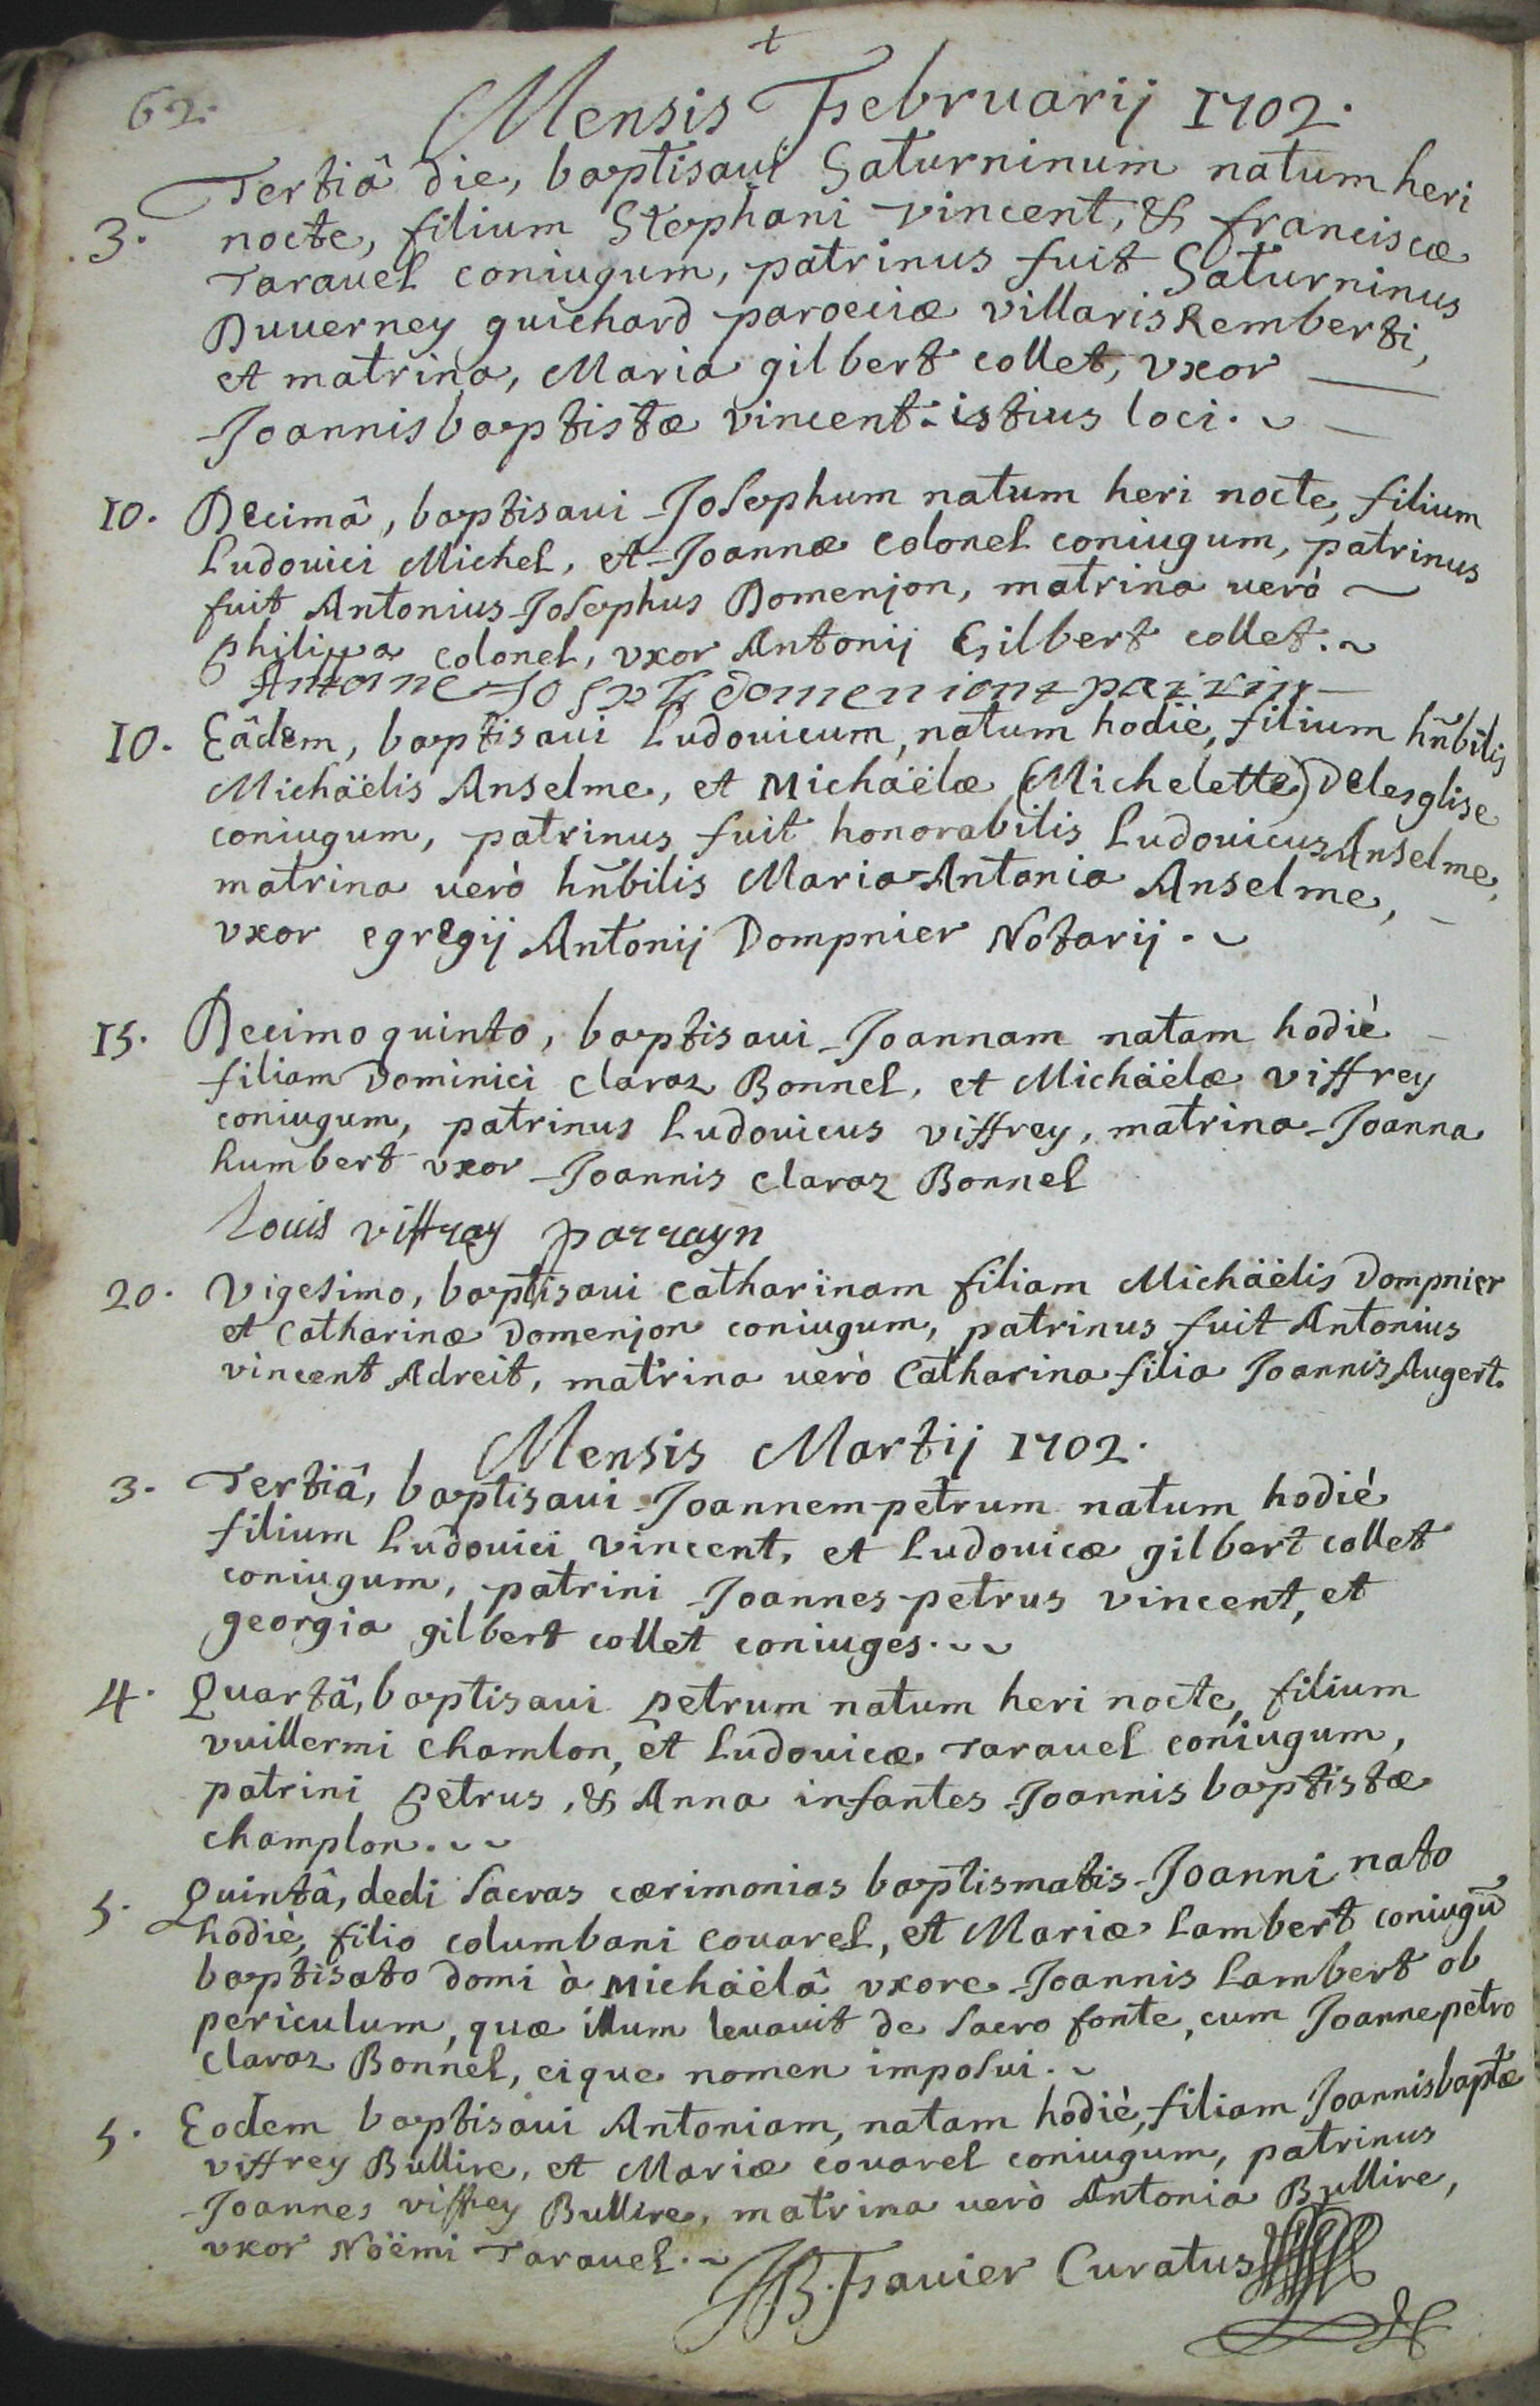 +
62.
Mensis Februarij 1702.
Tertiâ die, baptisaui Saturninum natum heri
3. nocte, filium Stephani vincent, & franciscæ
Tarauel coniugum, patrinus fuit Saturninus
Duuerney guichard parociæ villaris Remberti,
et matrina, Maria gilbert collet, vxor
Joannisbaptistæ vincent istius loci.
10. Decimâ, baptisaui Josephum natum heri nocte, filium
Ludouici Michel, et Joannæ colonel coniugum, patrinus
fuit Antonius Josephus Domenjon, matrina uerò
philippa colonel, vxor Antonij Gilbert collet.
Antoine Josepz domeniont pairin
10. Eâdem, baptisaui Ludouicum, natum hodiè, filium hñbilis
Michäelis Anselme, et Michäelæ (Michelette) Delesglise
coniugum, patrinus fuit honorabilis Ludouicus Anselme,
matrina uerò hñbilis Maria Antonia Anselme,
vxor egregij Antonij Dompnier Notarij.
15. Decimo quinto, baptisaui Joannam natam hodiè
filiam Dominici claraz Bonnel, et Michäelæ viffrey
coniugum, patrinus Ludouicus viffrey, matrina Joanna
humbert vxor Joannis claraz Bonnel
Louis viffray parrayn
20. Vigesimo, baptisaui catharinam filiam Michäelis Dompnier
et catharinæ Domenjon coniugum, patrinus fuit Antonius
vincent Adreit, matrina uerò Catharina filia Joannis Augert.
Mensis Martij 1702.
3. Tertiâ, baptisaui Joannempetrum natum hodiè
filium Ludouici vincent, et Ludouicæ gilbert collet
coniugum, patrini Joannes petrus vincent, et
georgia gilbert collet coniuges.
4. Quartâ, baptisaui petrum natum heri nocte, filium
vuillermi chamlon, et Ludouicæ Tarauel coniugum,
patrini petrus, & Anna infantes Joannis baptistæ
champlon.
5. Quintâ, dedi sacras cærimonias baptismatis Joanni nato
hodiè, filio columbani couarel, et Mariæ Lambert coniugũ
baptisato domi à Michäelâ vxore Joannis Lambert ob
periculum, quæ illum leuauit de sacro fonte, cum Joannepetro
claraz Bonnel, eique nomen imposui.
5. Eodem baptisaui Antoniam, natam hodiè, filiam Joannisbaptæ
viffrey Bullire, et Mariæ couarel coniugum, patrinus
Joannes viffrey Bullire, matrina uerò Antonia Bullire,
vxor Nöemi Tarauel.
JB. Fauier Curatus